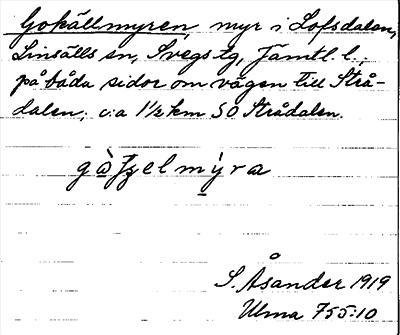 Gokällmyren, myr i Lofsdalen,
Linsälls sn, Svegs tg, Jämtl. l.;
på båda sidor om vägen till Strå-
dalen; c:a 1½ km SO Strådalen.
S. Åsander 1919
Ulma 755:10